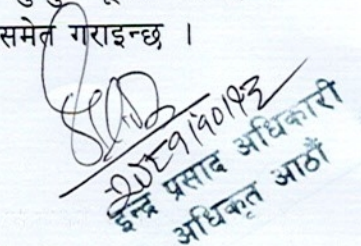 समेत गराइन्छ ।
२०८१।१०।१३
इन्द्र प्रसाद अधिकारी
अधिकृत आठौं